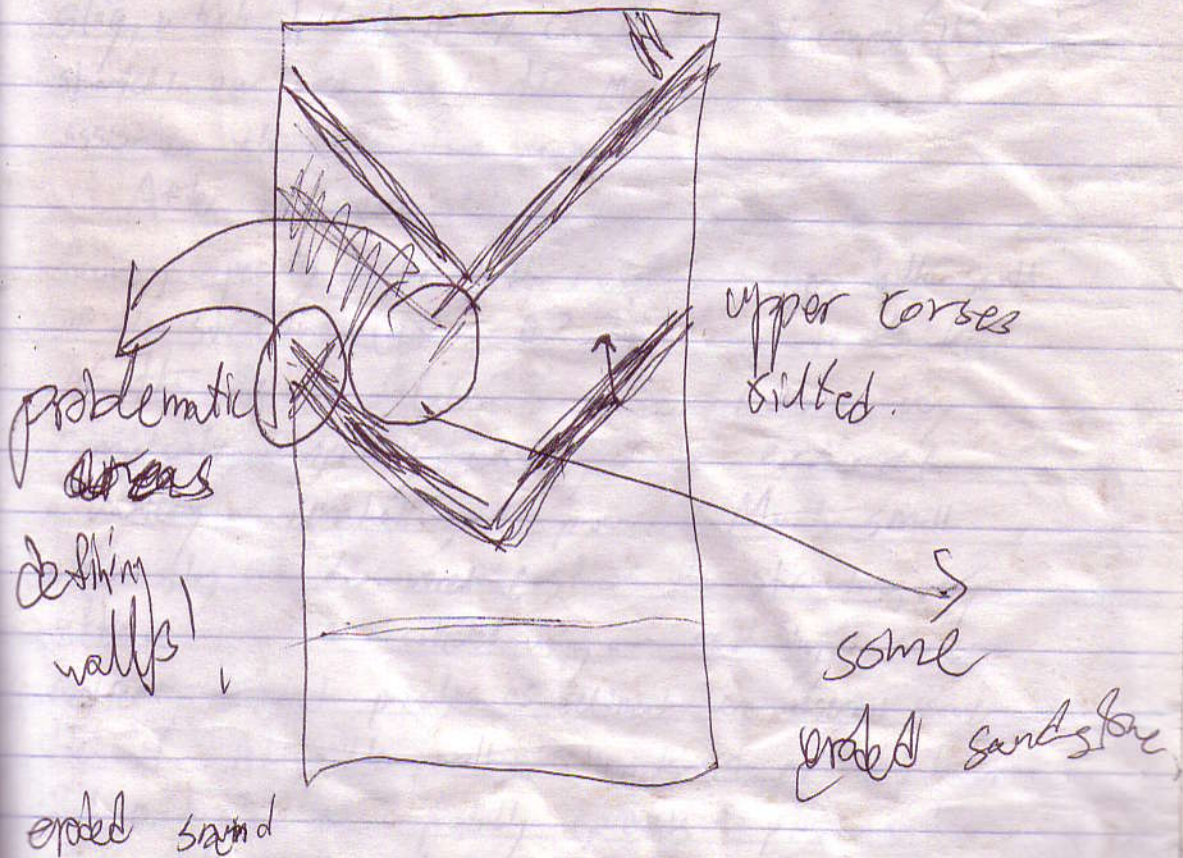 upper corses
silted.
problematic
areas
defining
walls!
some
eroded sandstone
eroded